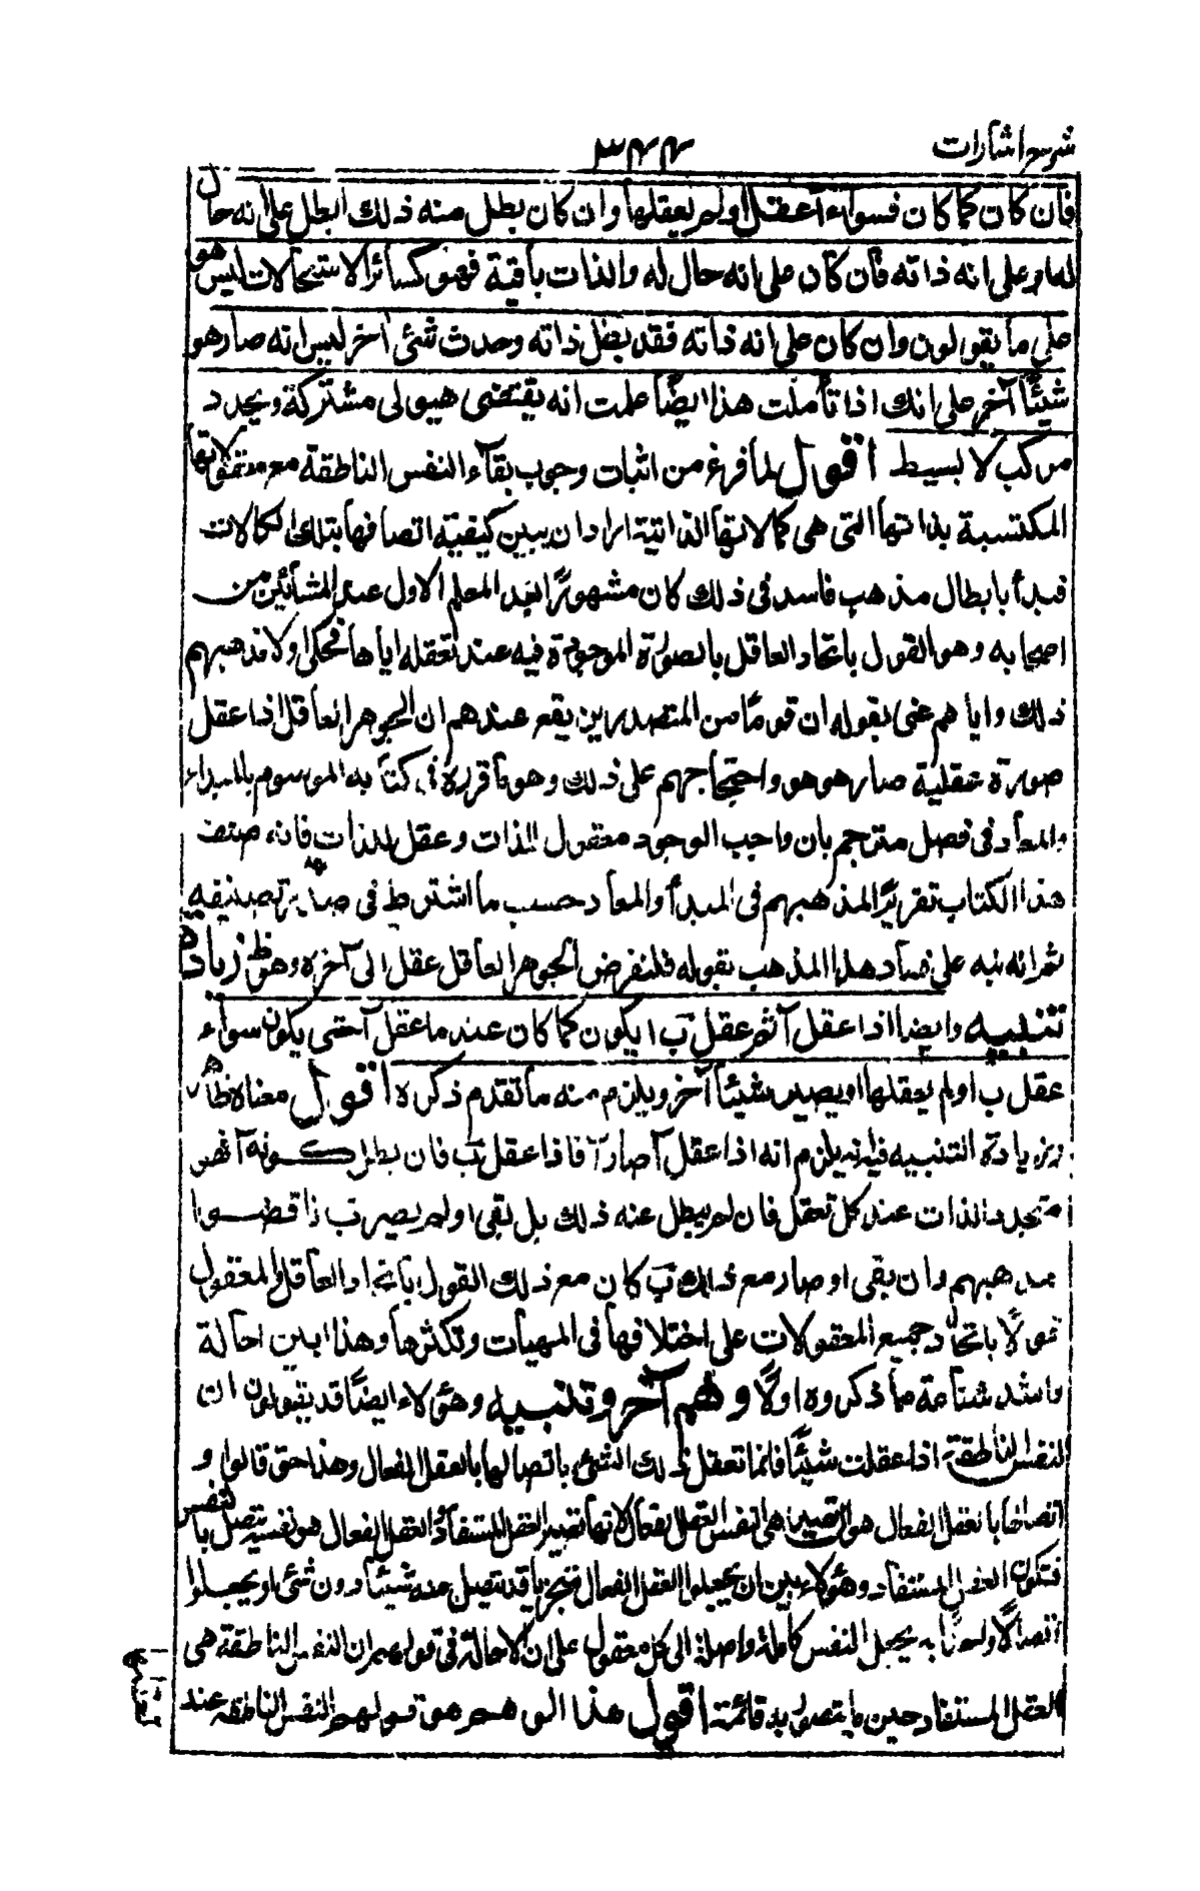 شرح اشارات ٣٤٤
فان كان كما كان فسواء عقل ا ولم يعقلها وان كان بطل منه ذلك ابطل على انه حال
له او على انه ذاته فان كان على انه حال له والذات باقية فهو كسائر الاستحالات ليس هو
على ما يقولون وان كان على انه ذاته فقد بطل ذاته وحدث شئ آخر ليس انه صار هو
شيئا آخر على انك اذا تأملت هذا ايضا علمت انه يقتضى هيولى مشتركة وتجدد
مركب لا بسيط اقول لما فرغ من اثبات وجوب بقاء النفس الناطقة مع معقولاتها
المكتسبة بذاتها التى هى كمالاتها الذاتية اراد ان يبين كيفية اتصافها بتلك الكمالات
فبدأ بابطال مذهب فاسد فى ذلك كان مشهورا بعد المعلم الاول عند المشائين من
اصحابه وهو القول باتحاد العاقل بالصورة الموجودة فيه عند تعقله اياها فحكى اولا مذهبهم
ذلك واياهم عنى بقوله ان قوما من المتصدرين يقع عندهم ان الجوهر العاقل اذا عقل
صورة عقلية صار هو هو واحتجاجهم على ذلك وهو ما قرره فى كتابه الموسوم بالمبداء
والمعاد فى فصل مترجم بان واجب الوجود معقول الذات وعقل الذات فانه صنف
هذا الكتاب تقريرا لمذهبهم فى المبدأ والمعاد حسب ما اشترط فى صدر تصنيفه
ثم انه نبه على فساد هذا المذهب بقوله فلنفرض الجوهر العاقل عقل الى آخره وهو ظ زيادة
تنبيه وايضا اذا عقل آ ثم عقل ب ايكون كما كان عند ما عقل آ حتى يكون سواء
عقل ب او لم يعقلها او يصير شيئا آخر ويلزم منه ما تقدم ذكره اقول معناه ظاهر
وزيادة التنبيه فيه انه يلزم انه اذا عقل آ صار آ فاذا عقل ب فان بطل كونه آ فهو
متجدد الذات عند كل تعقل فان لم يبطل عنه ذلك بل بقى ا ولم يصر ب ناقضوا
مذهبهم وان بقى ا وصار مع ذلك ب كان مع ذلك القول باتحاد العاقل والمعقول
قولا باتحاد جميع المعقولات على اختلافها فى المهيات وتكثرها وهذا ابين احالة
واشد شناعة مما ذكروه اولا وهم آخر وتنبيه وهؤلاء ايضا قد يقولون ان
النفس الناطقة اذا عقلت شيئا فانما تعقل ذلك الشئ باتصالها بالعقل الفعال وهذا حق قالوا و
اتصالها بالعقل الفعال هو ان تصير هى نفس العقل الفعال لانها تصير العقل المستفاد والعقل الفعال هو نفسه يتصل بالنفس
فتكون العقل المستفاد وهؤلاء بين ان يجعلوا العقل الفعال متجزيا قد يتصل منه شيئا دون شئ او يجعلوا
اتصالا واحدا به يجعل النفس كاملة واصلة الى كل معقول على ان الاحالة فى قولهم ان النفس الناطقة هى
العقل المستفاد حين ما يتصور به قائمة اقول هذا الوهم هو قولهم النفس الناطقة عند